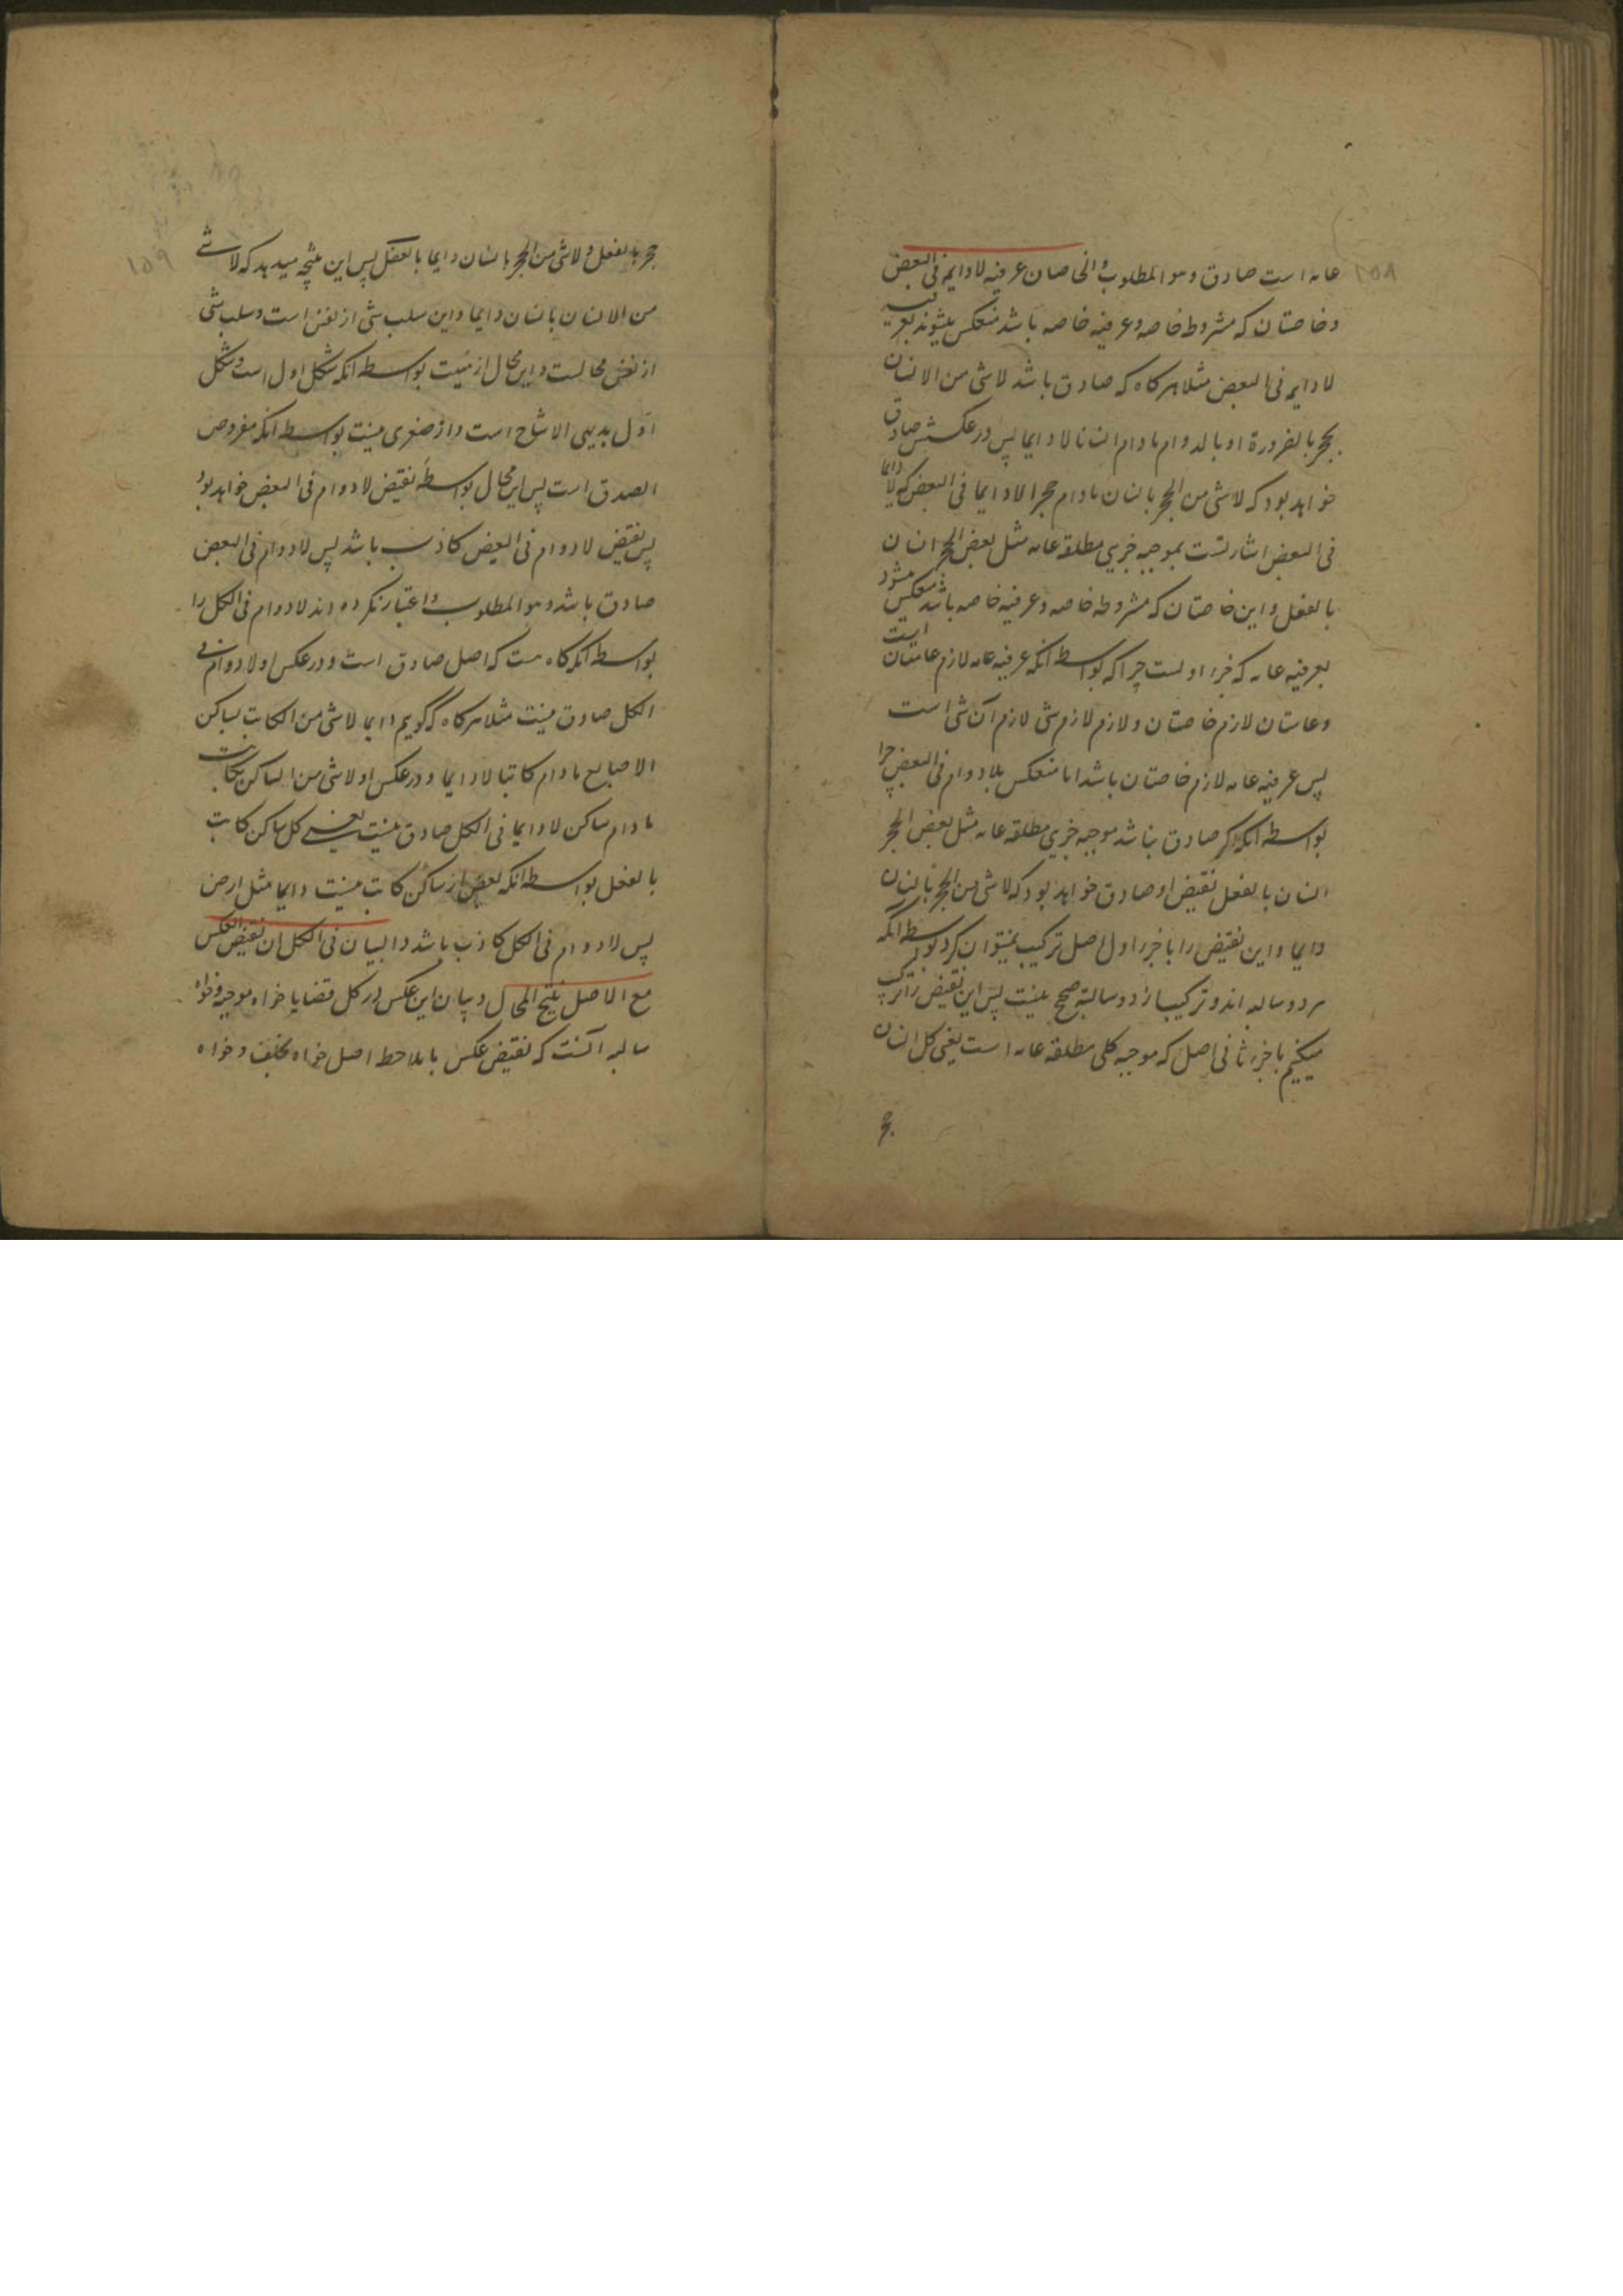 ۱۵۸
عامه است صادق وهو المطلوب والخاصان عرفیه لادایمه فی البعض
وخاصتان که مشروطه خاصه وعرفیه خاصه باشد منعکس میشوند بعرفیه
لادایمه فی البعض مثلا هرکاه که صادق باشد لاشی من الانسان
بحجر بالضرورة او بالدوام مادام انسانا لا دایما پس در عکسش صادق
خواهد بود که لاشی من الحجر بانسان مادام حجرا لادایما فی البعض که لادایما
فی البعض اشارتست بموجبه جزیی مطلقه عامه مثل بعض الحجر انسان
بالفعل واین خاصتان که مشروطه خاصه وعرفیه خاصه باشد منعکس میشود
بعرفیه عامه که جزء اولست چرا که بواسطه انکه عرفیه عامه لازم عامتان است
وعامتان لازم خاصتان ولازم لازم شی لازم آن شی است
پس عرفیه عامه لازم خاصتان باشد اما منعکس بلادوام فی البعض چرا
بواسطه انکه اکر صادق نباشد موجبه جزیی مطلقه عامه مثل بعض الحجر
انسان بالفعل نقیض او صادق خواهد بود که لاشی من الحجر بانسان
دایما واین نقیض را با جزء اول اصل ترکیب نمیتوان کرد بواسطه انکه
هر دو سالبه اند وترکیب از دو سالبه صحیح نیست پس این نقیض را ترکیب
میکنیم با جزء ثانی اصل که موجبه کلی مطلقه عامه است یعنی کل انسان
حجر
۱۵۹
حجر بالفعل ولاشی من الحجر بانسان دایما بالفعل پس این نتیجه میدهد که لاشی
من الانسان بانسان دایما واین سلب شی از نفس است وسلب شی
از نفس محالست واین محال از نیست بواسطه انکه شکل اول است وشکل
اول بدیهی الانتاج است واز صغری نیست بواسطه انکه مفروض
الصدق است پس این محال بواسطه نقیض لادوام فی البعض خواهد بود
پس نقیض لادوام فی البعض کاذب باشد پس لادوام فی البعض
صادق باشد وهو المطلوب واعتبار نکرده اند لادوام فی الکل را
بواسطه انکه کاه هست که اصل صادق است ودر عکس او لادوام فی
الکل صادق نیست مثلا هرکاه که کویم دایما لاشی من الکاتب بساکن
الاصابع مادام کاتبا لادایما ودر عکس او لاشی من الساکن بکاتب
مادام ساکن لادایما فی الکل صادق نیست یعنی کل ساکن کاتب
بالفعل بواسطه انکه بعض از ساکن کاتب نیست دایما مثل ارض
پس لادوام فی الکل کاذب باشد والبیان فی الکل ان نقیض العکس
مع الاصل ینتج المحال وبیان این عکس در کل قضایا خواه موجبه وخواه
سالبه آنست که نقیض عکس با ملاحظه اصل خواه بخلف وخواه